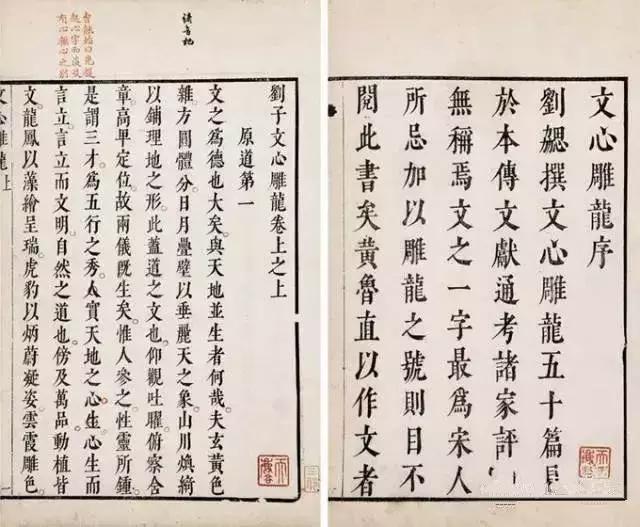 文心雕龍序
劉勰撰文心雕龍五十篇見
於本傳文獻通考諸家評
無稱焉文之一字最爲宋人
所忌加以雕龍之號則目不
閱此書矣黃魯直以作文者
劉子文心雕龍卷上之上
原道第一
文之爲德也大矣。與天地並生者何哉夫玄黃色
雜方圓體分。日月疊璧以垂麗天之象。山川煥綺
以鋪理地之形。此蓋道之文也。仰觀吐曜俯察含
章。高卑定位。故兩儀旣生矣。惟人參之。性靈所鍾。
是謂三才。爲五行之秀。人實天地之心。生。心生而
言立。言立而文明。自然之道也。傍及萬品。動植皆
文。龍鳳以藻繪呈瑞。虎豹以炳蔚凝姿。雲霞雕色
文心雕龍上